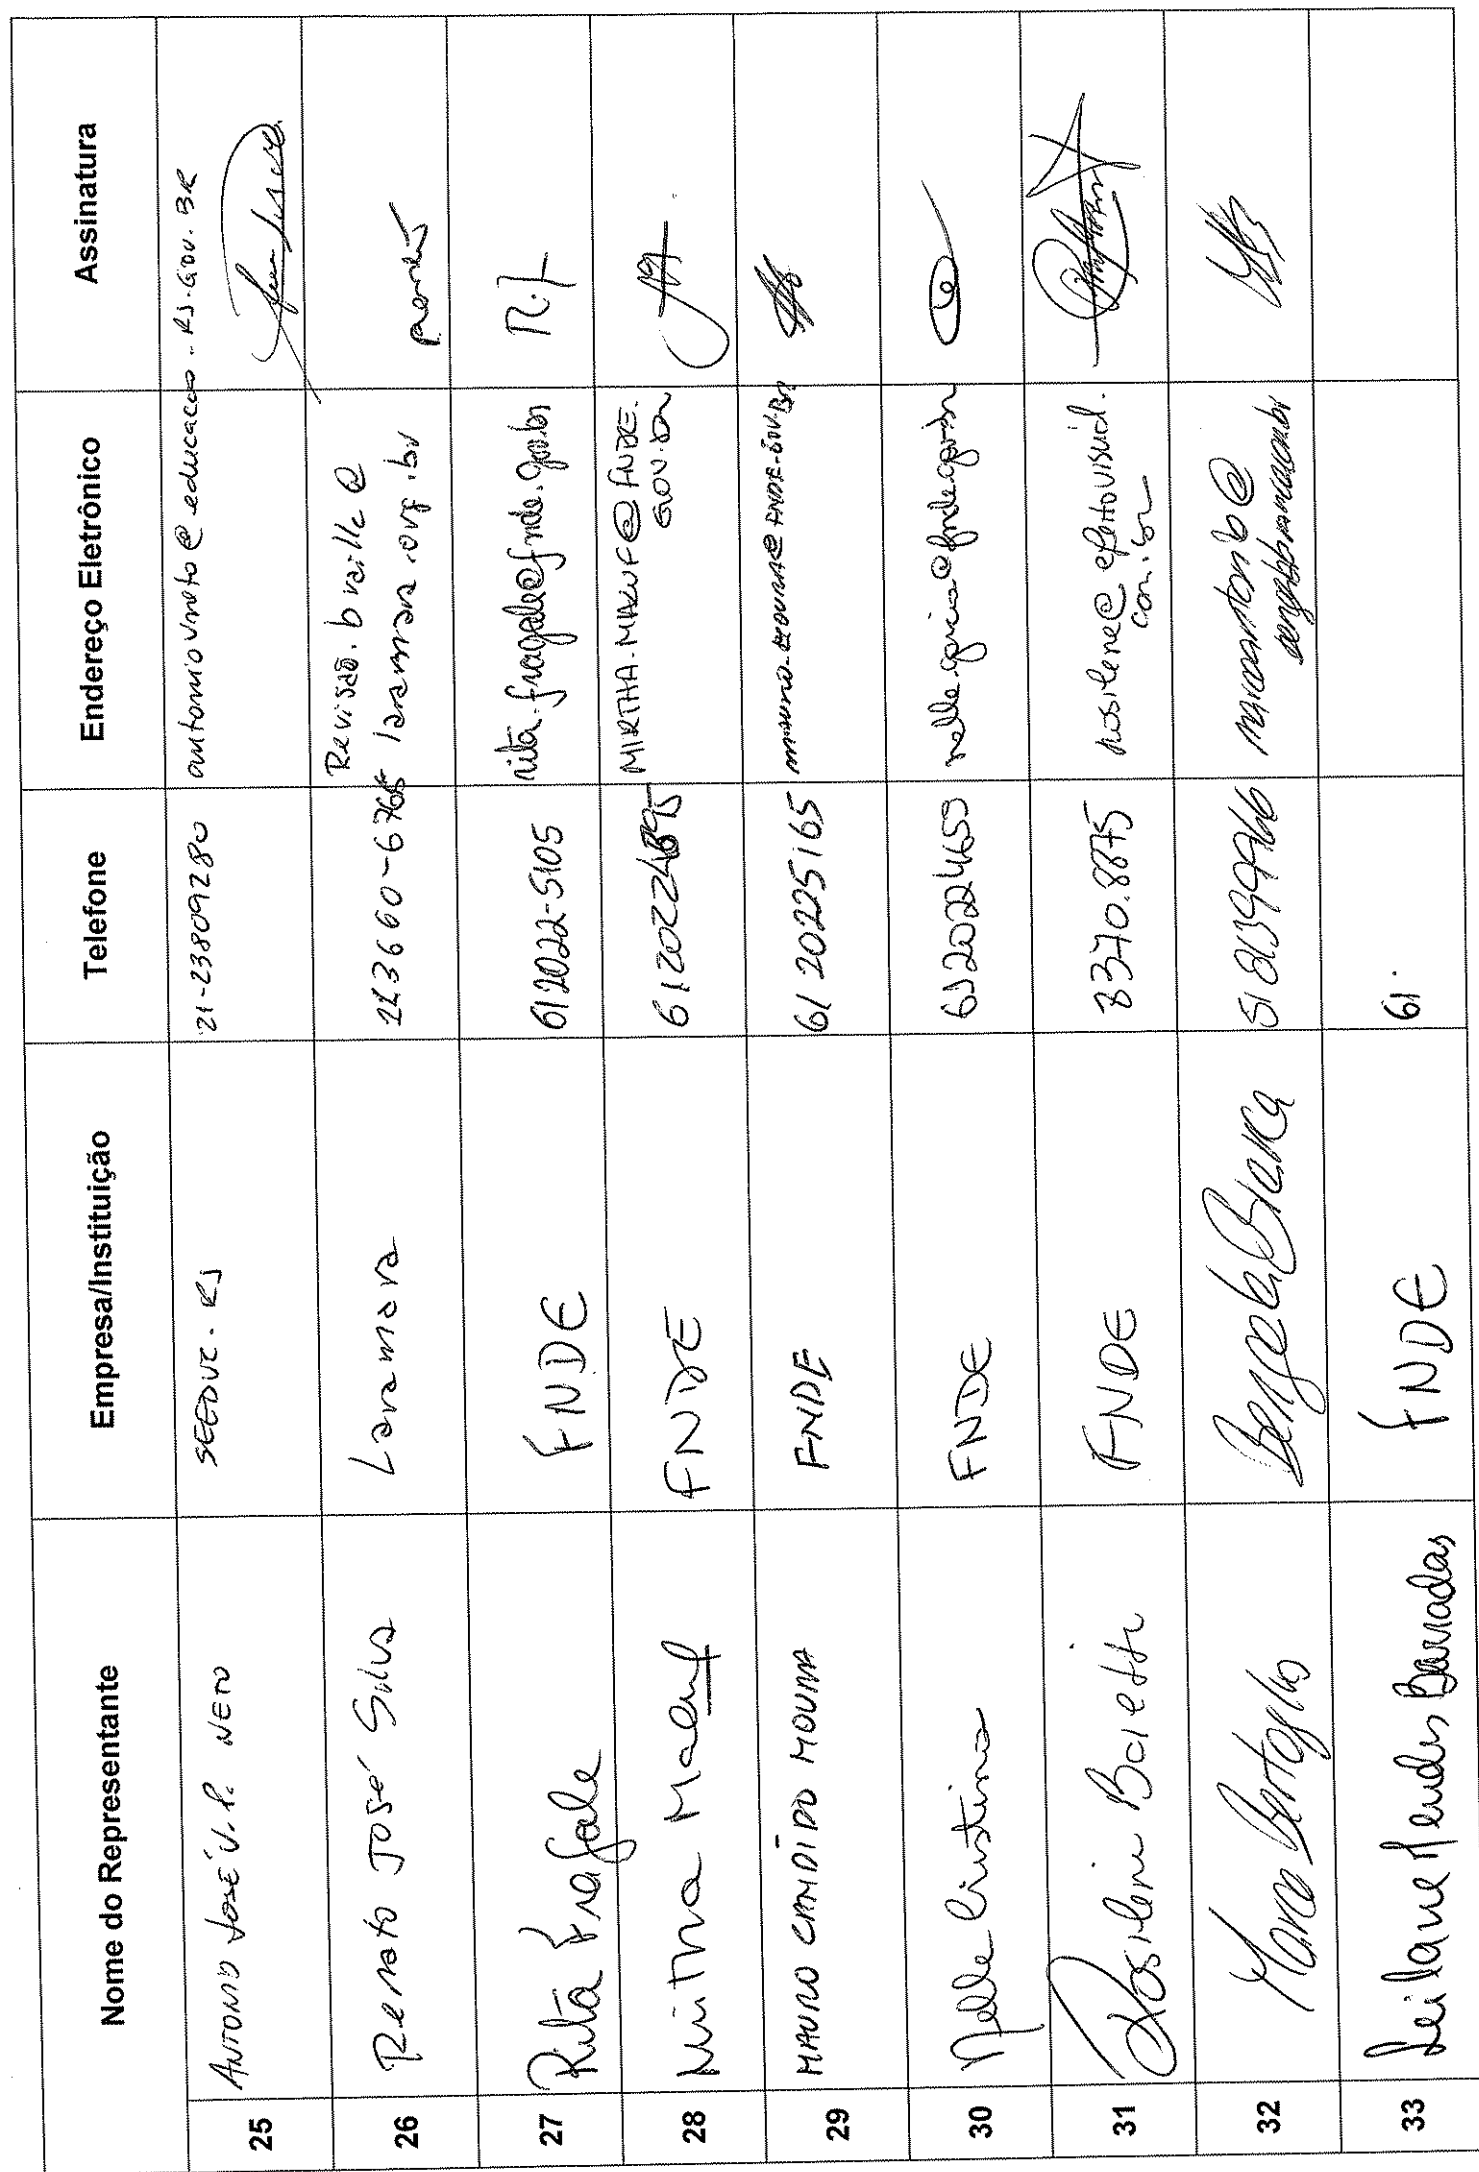 Nome do Representante Empresa/Instituição Telefone Endereço Eletrônico Assinatura
25 ANTONIO JOSÉ V.P. NETO SEEDUC-RJ 21-23809280 antoniovneto@educacao.RJ.GOV.BR
26 Renato José Silva Laramara 113660-6765 Revisão.braille@
laramara.org.br
27 Rita Fragale FNDE 612022-5105 rita.fragale@fnde.gov.br R.F
28 Mirtha Maluf FNDE MIRTHA.MALUF@FNDE.
GOV.br
29 MAURO CANDIDO MOURA FNDE 61 20225165 mauro.moura@FNDE.GOV.BR
30 Nelle Cristina FNDE 6120224659
31 Rosilene FNDE 3370.8875 rosilene@efeitovisual.
com.br
32 Bengala Branca
33 Leilane Mendes Barradas FNDE 61.